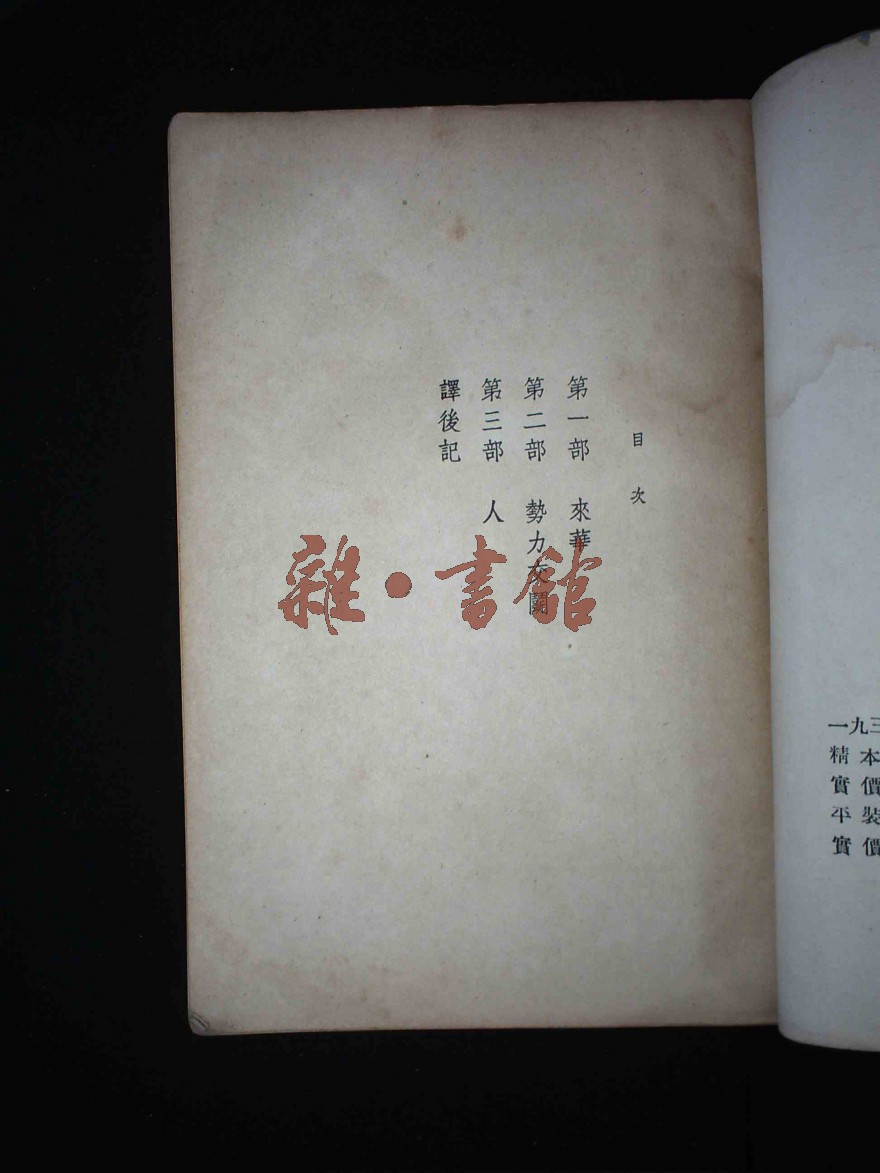 目次
第一部 來華
第二部 勢力交關
第三部 人
譯後記
雜·書館
一九三
精本
實價
平裝
實價